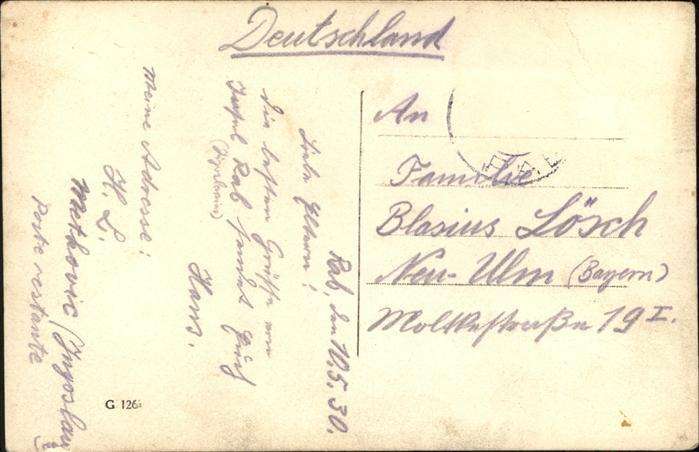 Deutschland
An
Familie
Blasius Lösch
Neu-Ulm (Bayern)
Moltkestraße 19 I.
Rab, den 10.5.30.
Liebe Eltern!
Die besten Grüße von
Insel Rab sendet Euch
Hans.
Meine Adresse:
H. L.
Metkovic (Jugoslavi
Poste restante
G 126